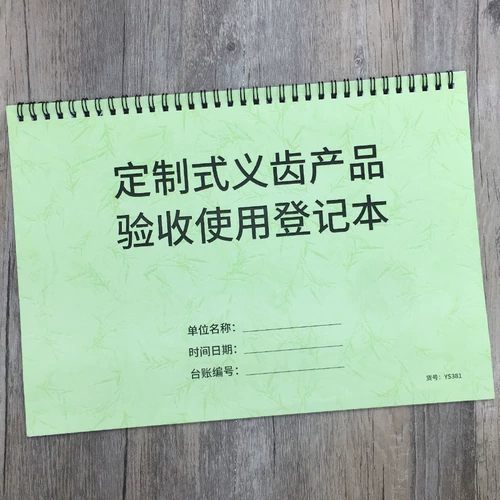 定制式义齿产品
验收使用登记本
单位名称：
时间日期：
台账编号：
货号：YS381